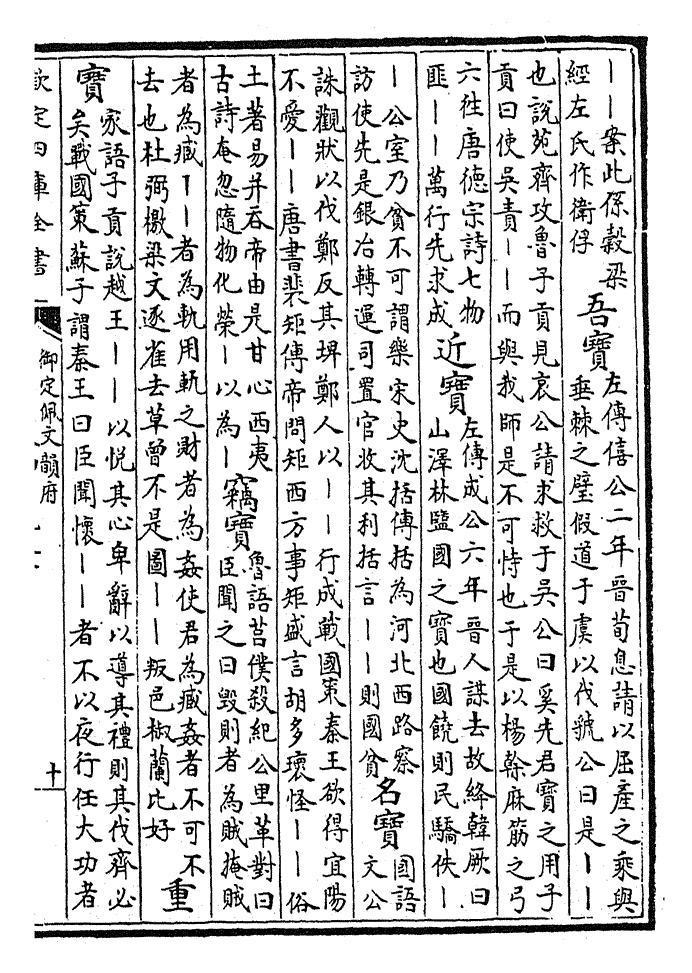 ——案此係穀梁
經左氏作衛俘
吾寶
左傳僖公二年晉荀息請以屈產之乘與
垂棘之璧假道于虞以伐虢公曰是——
也說苑齊攻魯子貢見哀公請求救于吳公曰奚先君寶之用子
貢曰使吳責——而與我師是不可恃也于是以楊榦麻筋之弓
六徃唐德宗詩七物
匪——萬行先求成
近寶
左傳成公六年晉人謀去故絳韓厥曰
山澤林鹽國之寶也國饒則民驕佚—
—公室乃貧不可謂樂宋史沈括傳括為河北西路察
訪使先是銀冶轉運司置官收其利括言——則國貧
名寶
國語
文公
誅觀狀以伐鄭反其埤鄭人以——行成戰國策秦王欲得宜陽
不愛——唐書裴矩傳帝問矩西方事矩盛言胡多瓌怪——俗
土著易并吞帝由是甘心西夷
古詩奄忽隨物化榮—以為—
竊寶
魯語莒僕殺紀公里革對曰
臣聞之曰毀則者為賊掩賊
者為臧——者為軌用軌之財者為姦使君為臧姦者不可不
去也杜弼檄梁文逐雀去草曾不是圖——叛邑椒蘭比好
重
寶
家語子貢說越王——以悅其心卑辭以導其禮則其伐齊必
矣戰國策蘇子謂秦王曰臣聞懷——者不以夜行任大功者
欽定四庫全書
御定佩文韻府
十